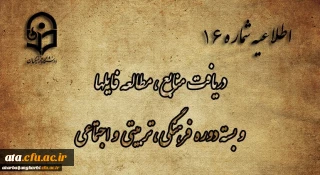 اطلاعیه شماره ۱۶
دریافت منابع، مطالعه فایلها
و بسته دوره فرهنگی، تربیتی و اجتماعی
ata.cfu.ac.ir